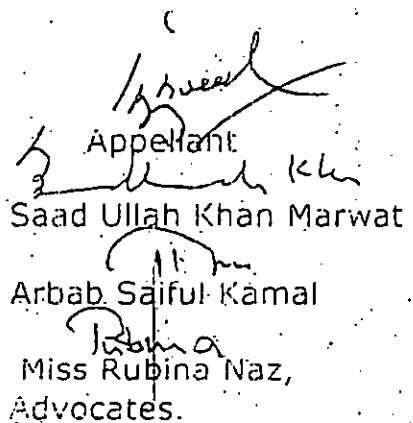 Appellant
Khan
Saad Ullah Khan Marwat
Arbab Saiful Kamal
Rubina
Miss Rubina Naz,
Advocates.